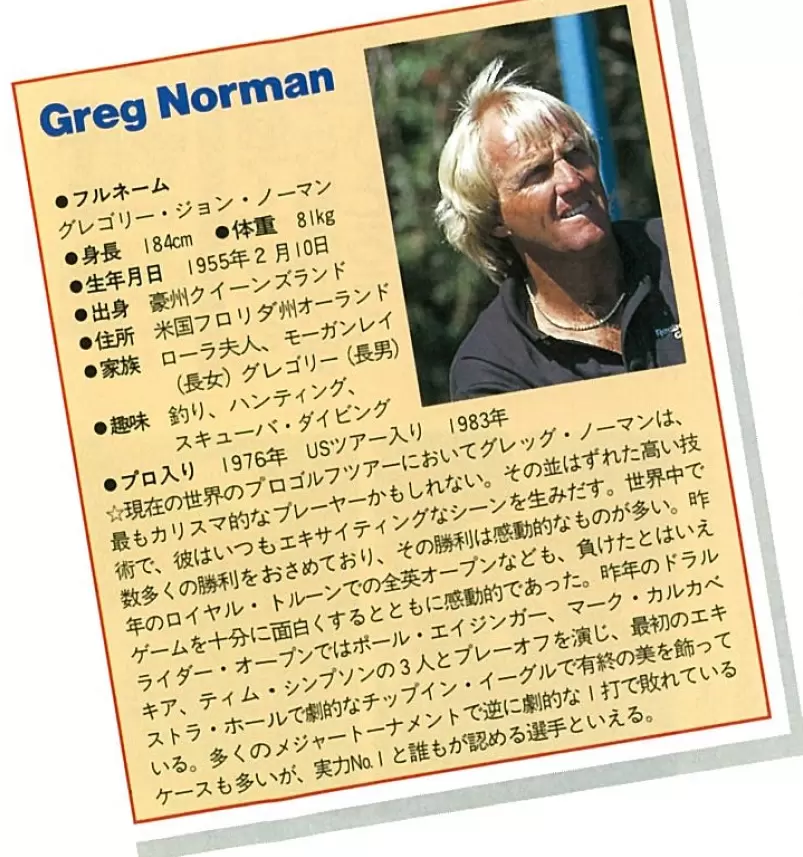 Greg Norman
●フルネーム
グレゴリー・ジョン・ノーマン
●身長 184cm ●体重 81kg
●生年月日 1955年2月10日
●出身 豪州クイーンズランド
●住所 米国フロリダ州オーランド
●家族 ローラ夫人、モーガンレイ
(長女)グレゴリー(長男)
●趣味 釣り、ハンティング、
スキューバ・ダイビング
●プロ入り 1976年 USツアー入り 1983年
☆現在の世界のプロゴルフツアーにおいてグレッグ・ノーマンは、
最もカリスマ的なプレーヤーかもしれない。その並はずれた高い技
術で、彼はいつもエキサイティングなシーンを生みだす。世界中で
数多くの勝利をおさめており、その勝利は感動的なものが多い。昨
年のロイヤル・トルーンでの全英オープンなども、負けたとはいえ
ゲームを十分に面白くするとともに感動的であった。昨年のドラル
ライダー・オープンではポール・エイジンガー、マーク・カルカベ
キア、ティム・シンプソンの3人とプレーオフを演じ、最初のエキ
ストラ・ホールで劇的なチップイン・イーグルで有終の美を飾って
いる。多くのメジャートーナメントで逆に劇的な1打で敗れている
ケースも多いが、実力No.1と誰もが認める選手といえる。